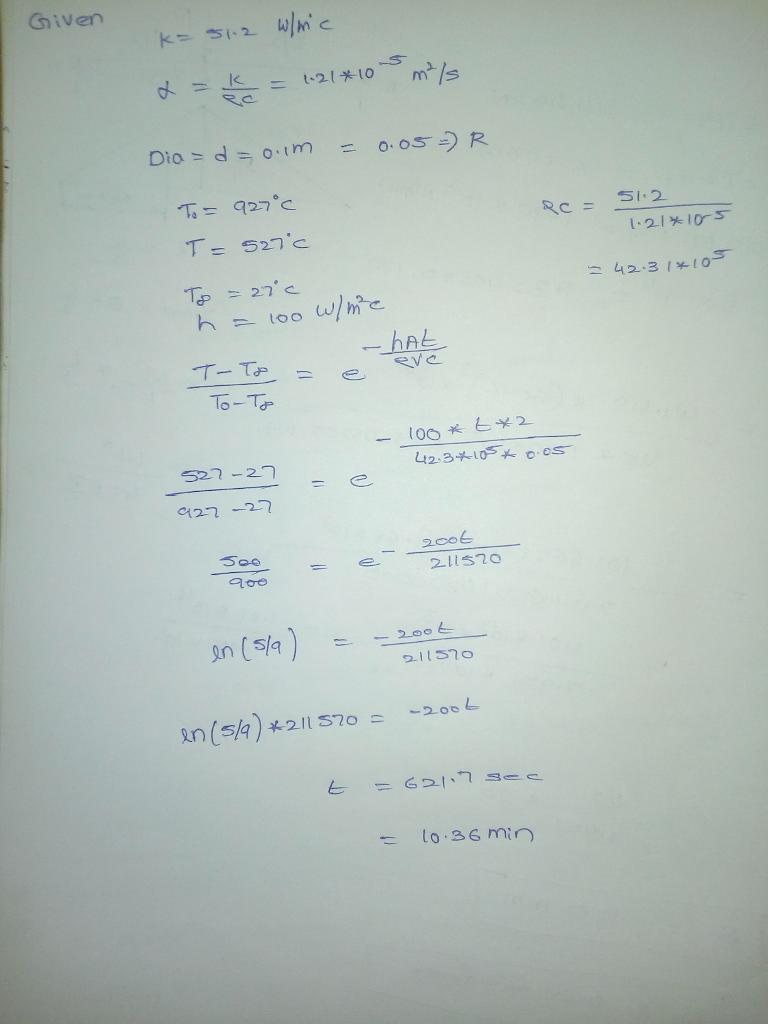 Given
k = 51.2 W/m°c
α = k/ρc = 1.21*10^-5 m²/s
Dia = d = 0.1m = 0.05 => R
To = 927°c
ρc = 51.2/1.21*10^-5
T = 527°c
= 42.31*10^5
T∞ = 27°c
h = 100 W/m²c
T-T∞/To-T∞ = e^-hAt/ρvc
527-27/927-27 = e^-100*t*2/42.3*10^5*0.05
500/900 = e^-200t/211570
ln(5/9) = -200t/211570
ln(5/9)*211570 = -200t
t = 621.7 sec
= 10.36 min